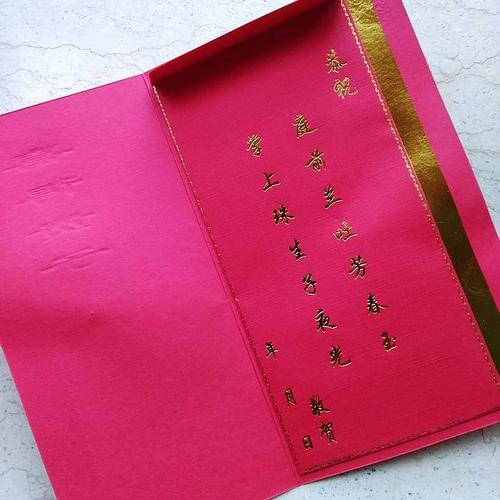 恭祝
庭前兰吐芳春玉
掌上珠生子夜光
敬贺
年月日